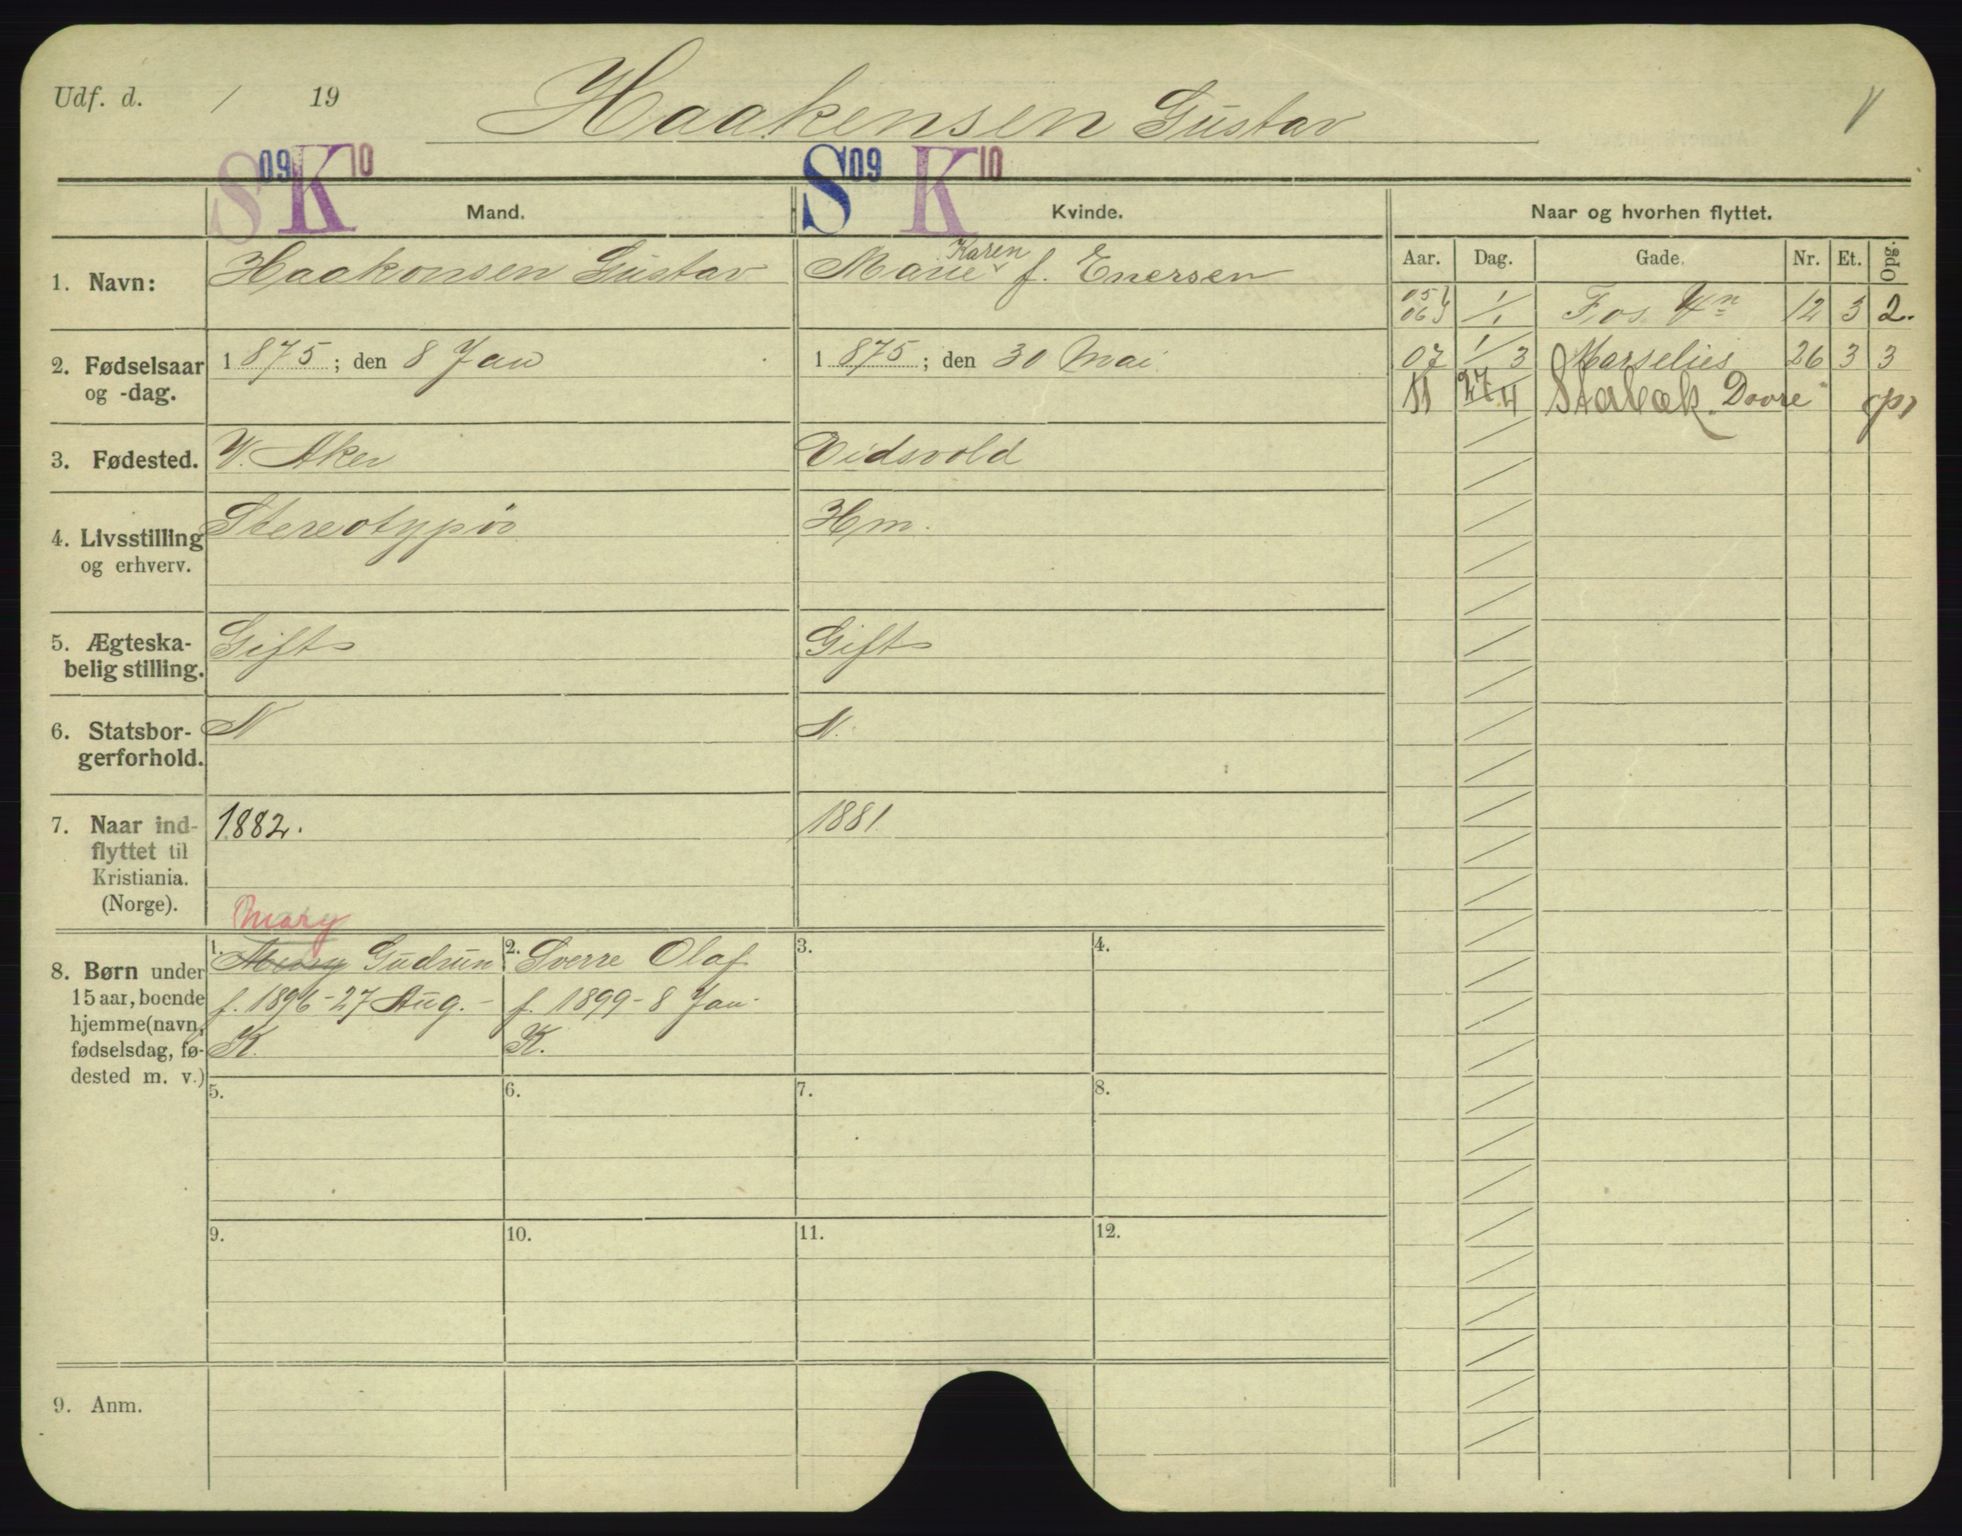 Udf. d. / 19 Haakensen Gustav
S 09 K 10 S 09 K 10
Mand. Kvinde. Naar og hvorhen flyttet.
Aar. Dag. Gade. Nr. Et. Opg.
1. Navn: Haakonsen Gustav Marie Karen f. Enersen
05 06 1/1 Fos Vn 12 3 2.
2. Fødselsaar og -dag. 1875; den 8 Jan 1875; den 30 Mai
07 1/3 Marselies 26 3 3
11 27/4 Stabæk "Dovre"
3. Fødested. V. Aker Eidsvold
4. Livsstilling og erhverv. Stereotypør Hm.
5. Ægteska-
belig stilling. Gift Gift
6. Statsbor-
gerforhold. N N.
7. Naar ind-
flyttet til
Kristiania.
(Norge). 1882. 1881
Mary
8. Børn under
15 aar, boende
hjemme (navn,
fødselsdag, fø-
dested m. v.)
1. Gudrun
f. 1896 - 27 Aug. -
K.
2. Sverre Olaf
f. 1899 - 8 Jan.
K.
3. 4.
5. 6. 7. 8.
9. 10. 11. 12.
9. Anm.